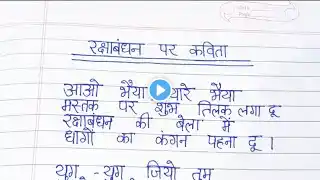 रक्षाबंधन पर कविता
आओ भैया यारे भैया
मस्तक पर शुभ तिलक लगा दू
रक्षाबंधन की बेला में
धागों का कंगन पहना दू ।
युग - युग जियो तुम